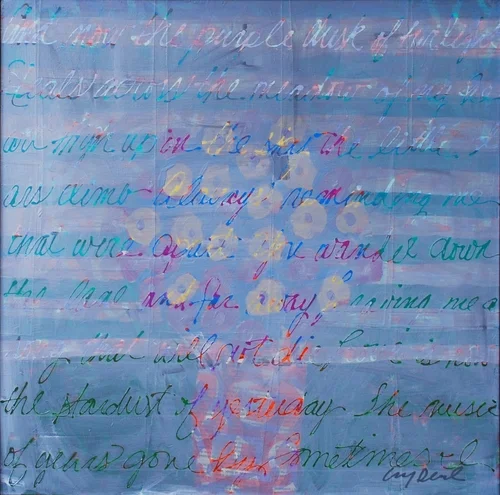 And now the purple dusk of twilight
Steals across the meadow of my
up in the the little
ars climb always reminding me
that were apart you wander down
the lane and far away leaving me a
that will not die is now
the stardust of yesterday The music
of years gone by. Sometimes I